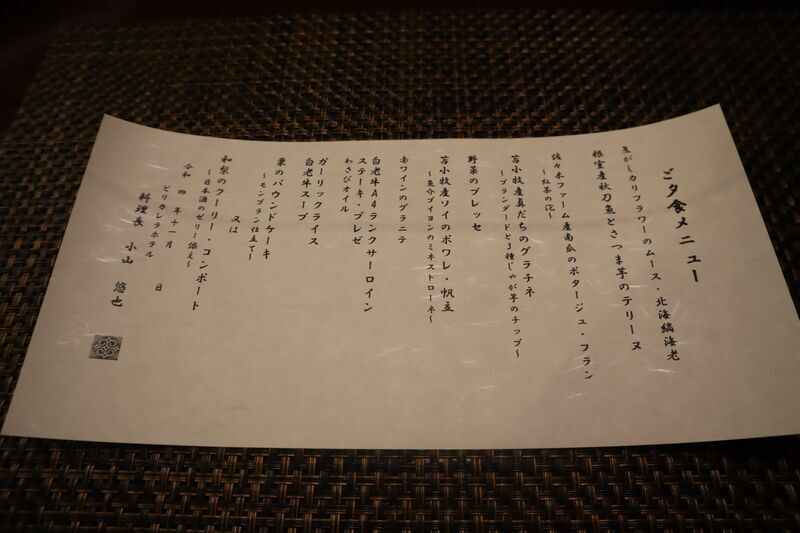 ご夕食メニュー
焦がしカリフラワーのムース・北海縞海老
根室産秋刀魚とさつま芋のテリーヌ
佐々木ファーム産南瓜のポタージュ・フラン
～紅茶の泡～
苫小牧産真だちのグラチネ
～ブランダードと3種じゃが芋のチップ～
野菜のブレッセ
苫小牧産ソイのポワレ・帆立
～魚介ブイヨンのミネストローネ～
赤ワインのグラニテ
白老牛A4ランクサーロイン
ステーキ・ブレゼ
わさびオイル
ガーリックライス
白老牛スープ
栗のパウンドケーキ
～モンブラン仕立て～
又は
和梨のクーリー・コンポート
～日本酒のゼリー添え～
令和 四 年 十一 月 日
ピリカレラホテル
料理長 小山 悠也